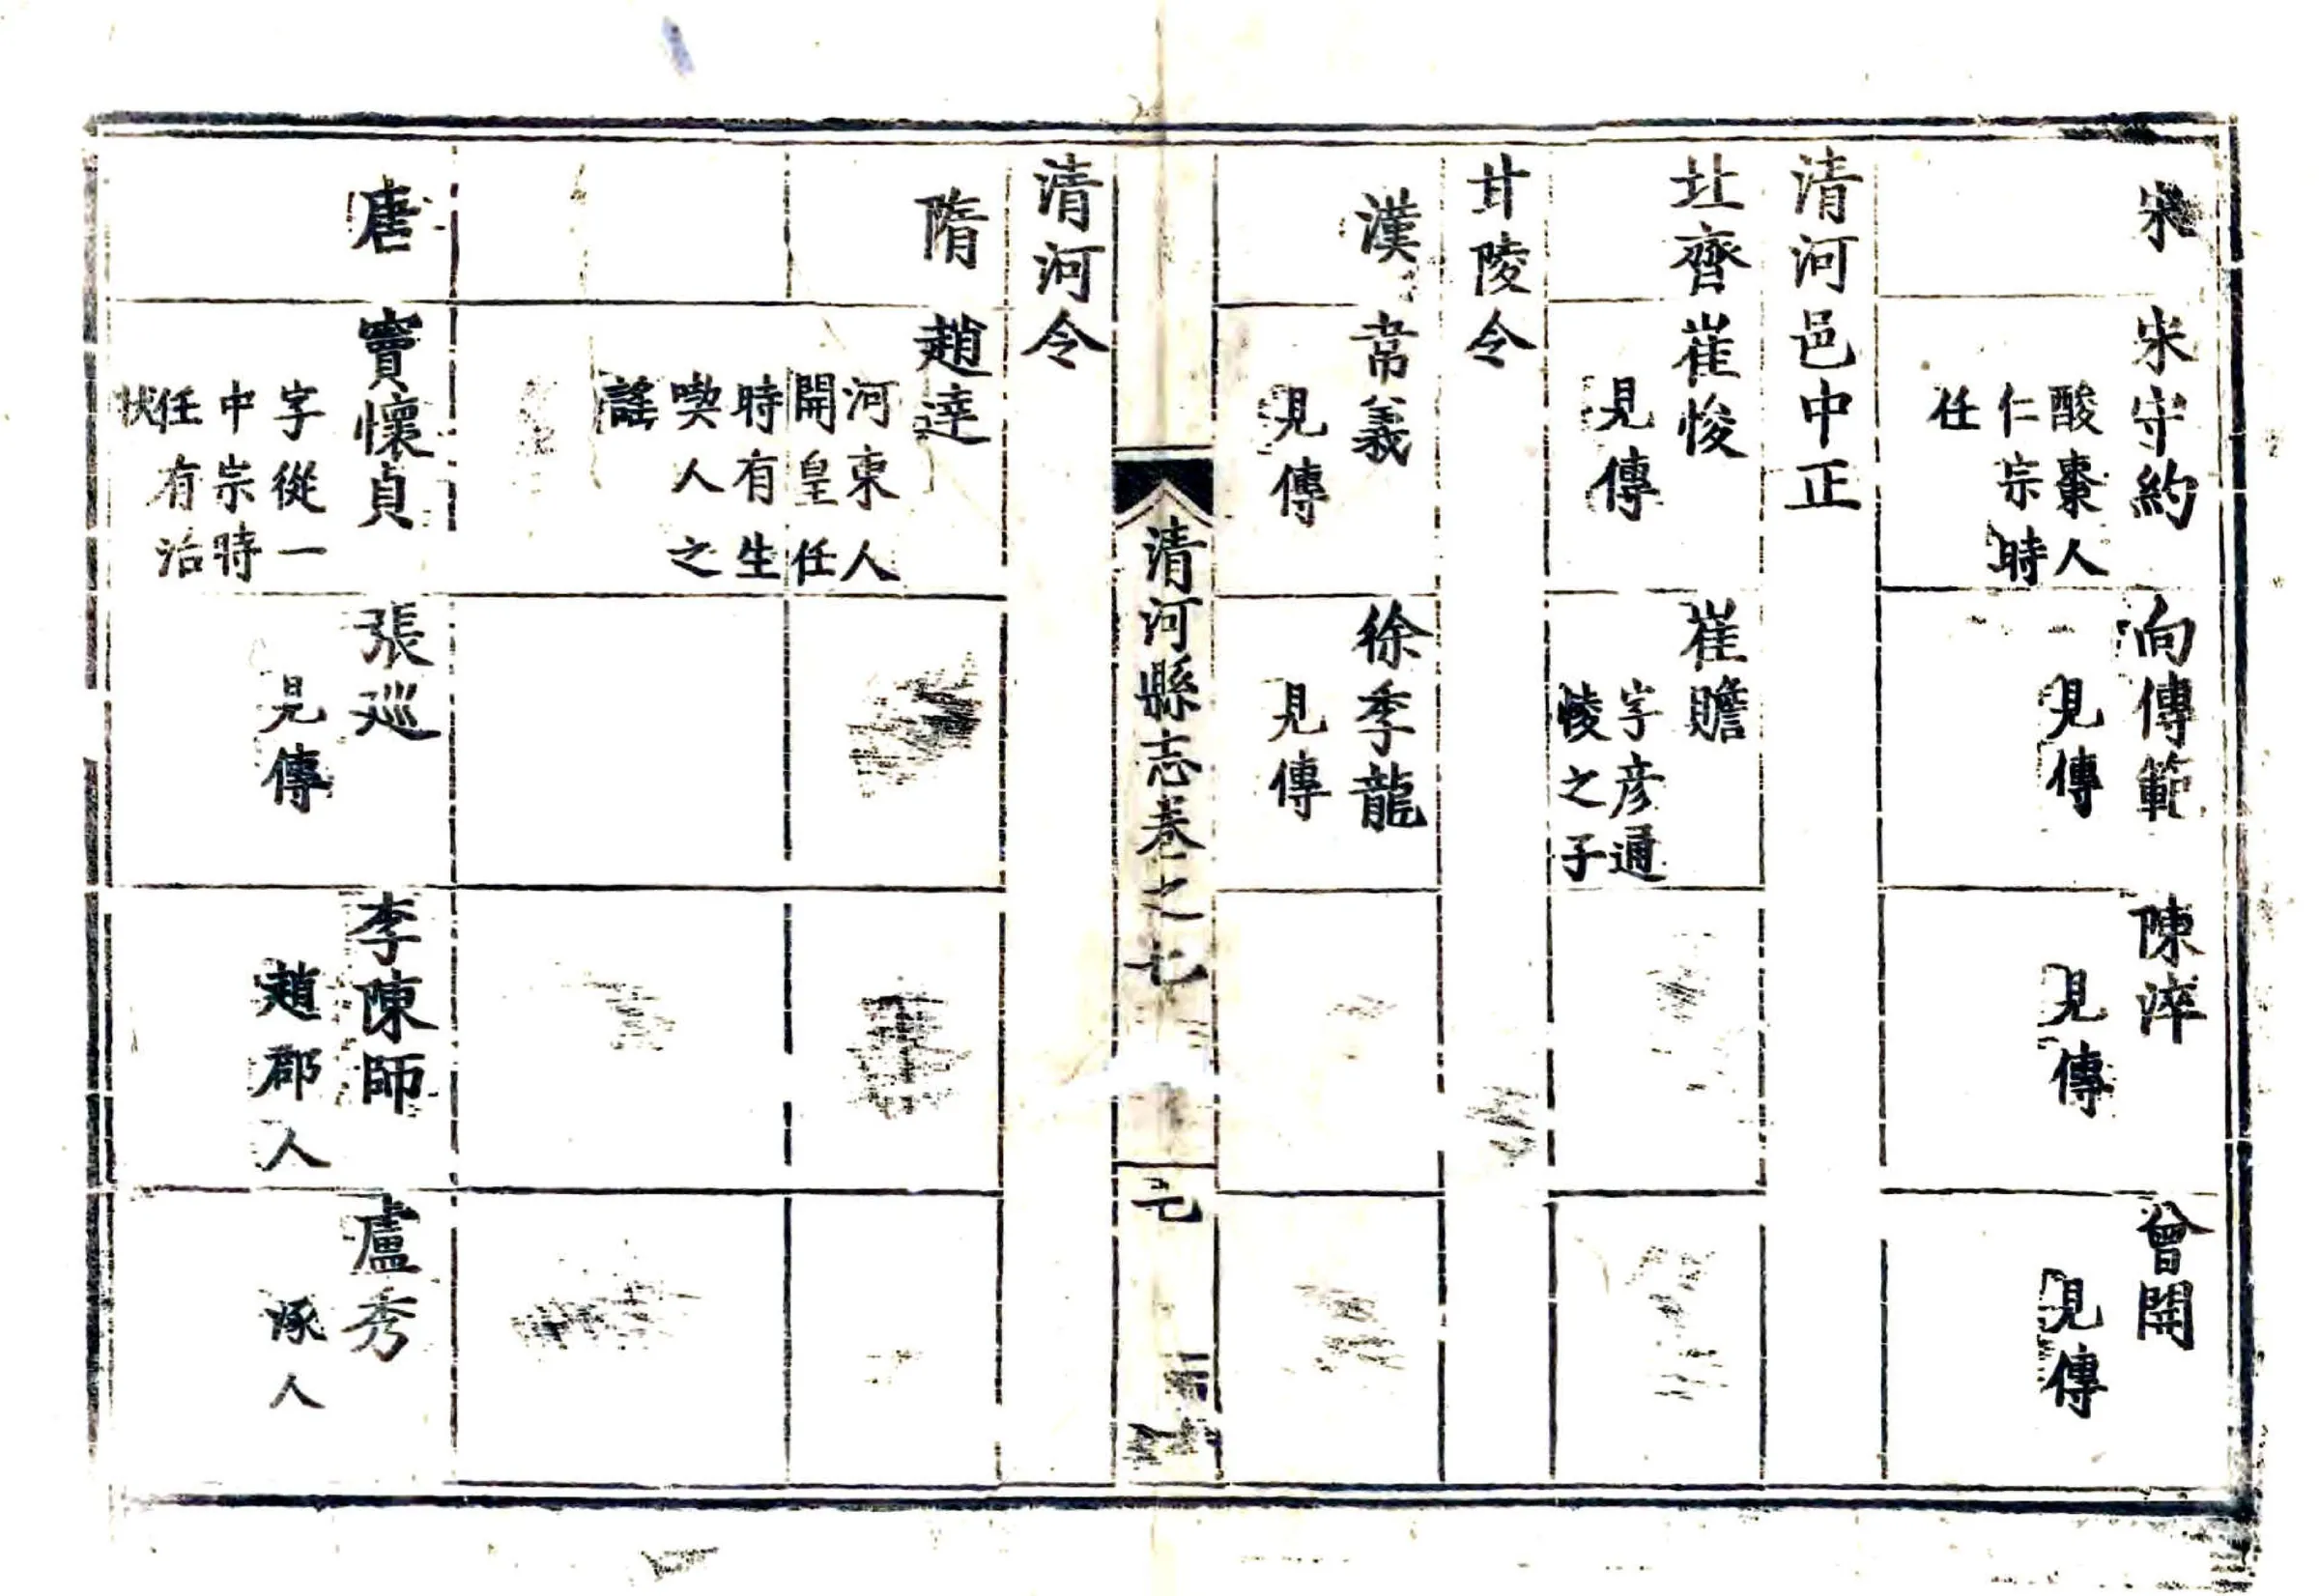 宋
宋守約
酸棗人
仁宗時
任
向傳範
見傳
陳淬
見傳
曾開
見傳
清河邑中正
北齊
崔㥄
見傳
崔贍
字彥通
㥄之子
甘陵令
漢
常義
見傳
徐季龍
見傳
清河縣志卷之七
七
清河令
隋
趙達
河東人
開皇任
時有生
喫人之
謠
唐
竇懷貞
字從一
中宗時
任有治
狀
張巡
見傳
李陳師
趙郡人
盧秀
涿人